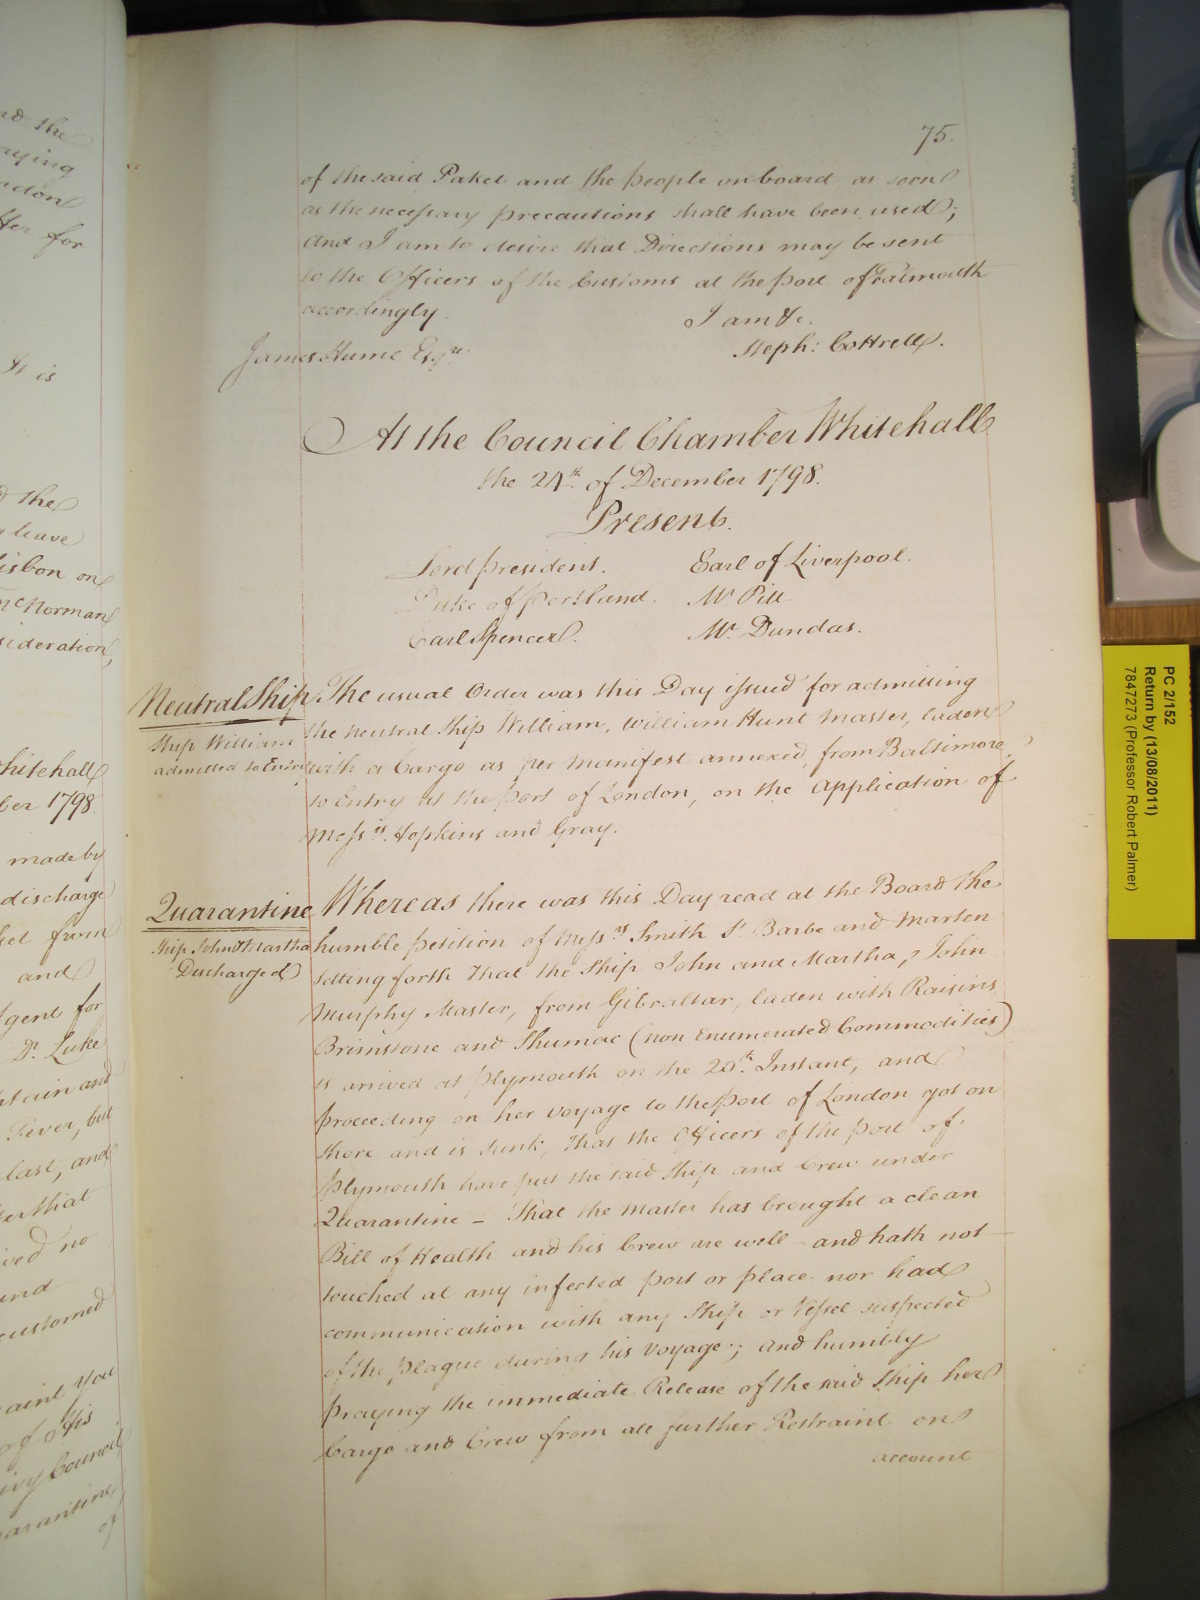 75.
of the said Paket and the people on board as soon
as the necessary precautions shall have been used;
And I am to desire that Directions may be sent
to the Officers of the Customs at the port of Falmouth
accordingly. I am &c.
James Hume Esqre. Steph: Cottrell.
At the Council Chamber Whitehall
the 24th. of December 1798.
Present.
Lord president. Earl of Liverpool.
Duke of portland. Mr Pitt.
Earl Spencer. Mr. Dundas.
Neutral Ship
Ship William
admitted to Entry
The usual Order was this Day issued for admitting
the neutral Ship William, William Hunt Master, laden
with a Cargo as per Manifest annexed, from Baltimore,
to Entry at the port of London, on the Application of
Messrs. Hopkins and Gray.
Quarantine
Ship John & Martha
Discharged
Whereas there was this Day read at the Board the
humble petition of Messrs Smith St Barbe and Marten
setting forth That the Ship John and Martha, John
Murphy Master, from Gibraltar, laden with Raisins
Brimstone and Shumac (non Enumerated Commodities)
is arrived at plymouth on the 20th. Instant, and
proceeding on her voyage to the port of London got on
shore and is sunk; That the Officers of the port of
plymouth have put the said Ship and Crew under
Quarantine – That the Master has brought a clean
Bill of Health and his Crew are well – and hath not
touched at any infected port or place nor had
communication with any Ship or Vessel suspected
of the plague during his voyage; and humbly
praying the immediate Release of the said Ship her
Cargo and Crew from all further Restraint on
account
nd the
aying
ndon
tter for
It is
d the
leave
isbon on
McNorman
sideration,
hitehall
ber 1798
made by
discharge
ket from
and
Agent for
Dr. Luke
Fever, but
last, and
ter that
ived no
und
customed
aint You
of His
ivy Council
uarantine
of
PC 2/152
Return by (13/08/2011)
7847273 (Professor Robert Palmer)